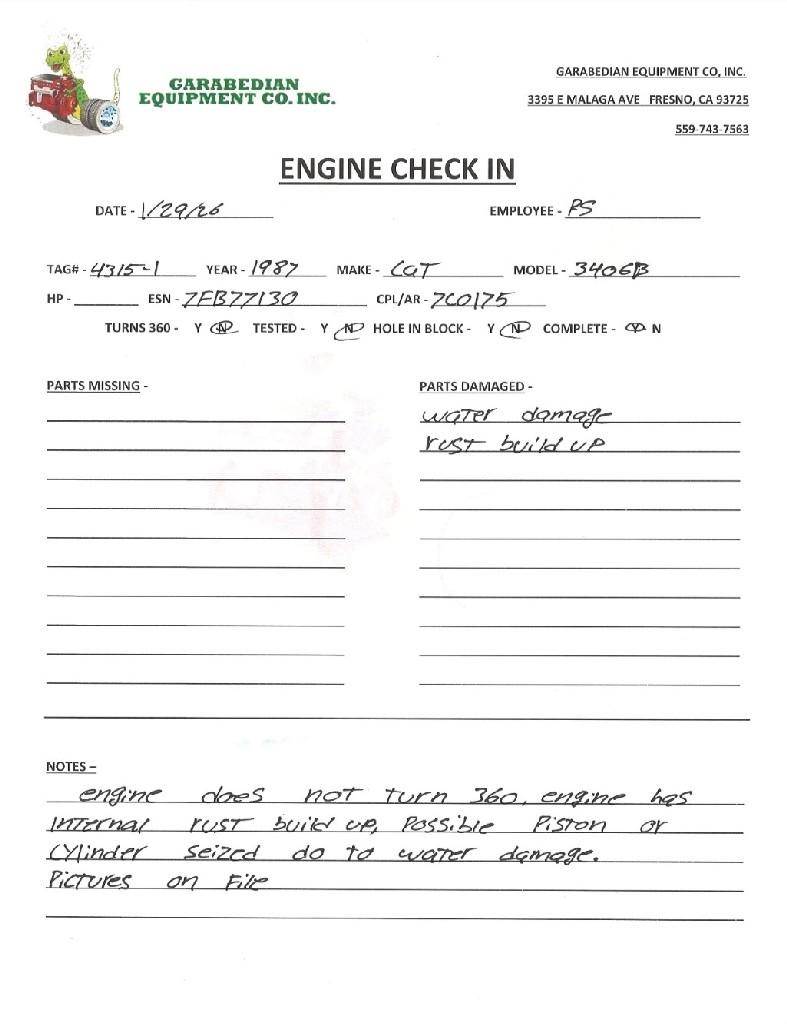 GARABEDIAN
EQUIPMENT CO. INC.
GARABEDIAN EQUIPMENT CO, INC.
3395 E MALAGA AVE FRESNO, CA 93725
559-743-7563
ENGINE CHECK IN
DATE - 1/29/26 EMPLOYEE - PS
TAG# - 4315-1 YEAR - 1987 MAKE - CAT MODEL - 3406B
HP - ESN - 7FB77130 CPL/AR - 7C0175
TURNS 360 - Y N TESTED - Y N HOLE IN BLOCK - Y N COMPLETE - Y N
PARTS MISSING -
PARTS DAMAGED -
water damage
rust build up
NOTES –
engine does not turn 360, engine has
internal rust build up, Possible Piston or
cylinder seized do to water damage.
Pictures on File